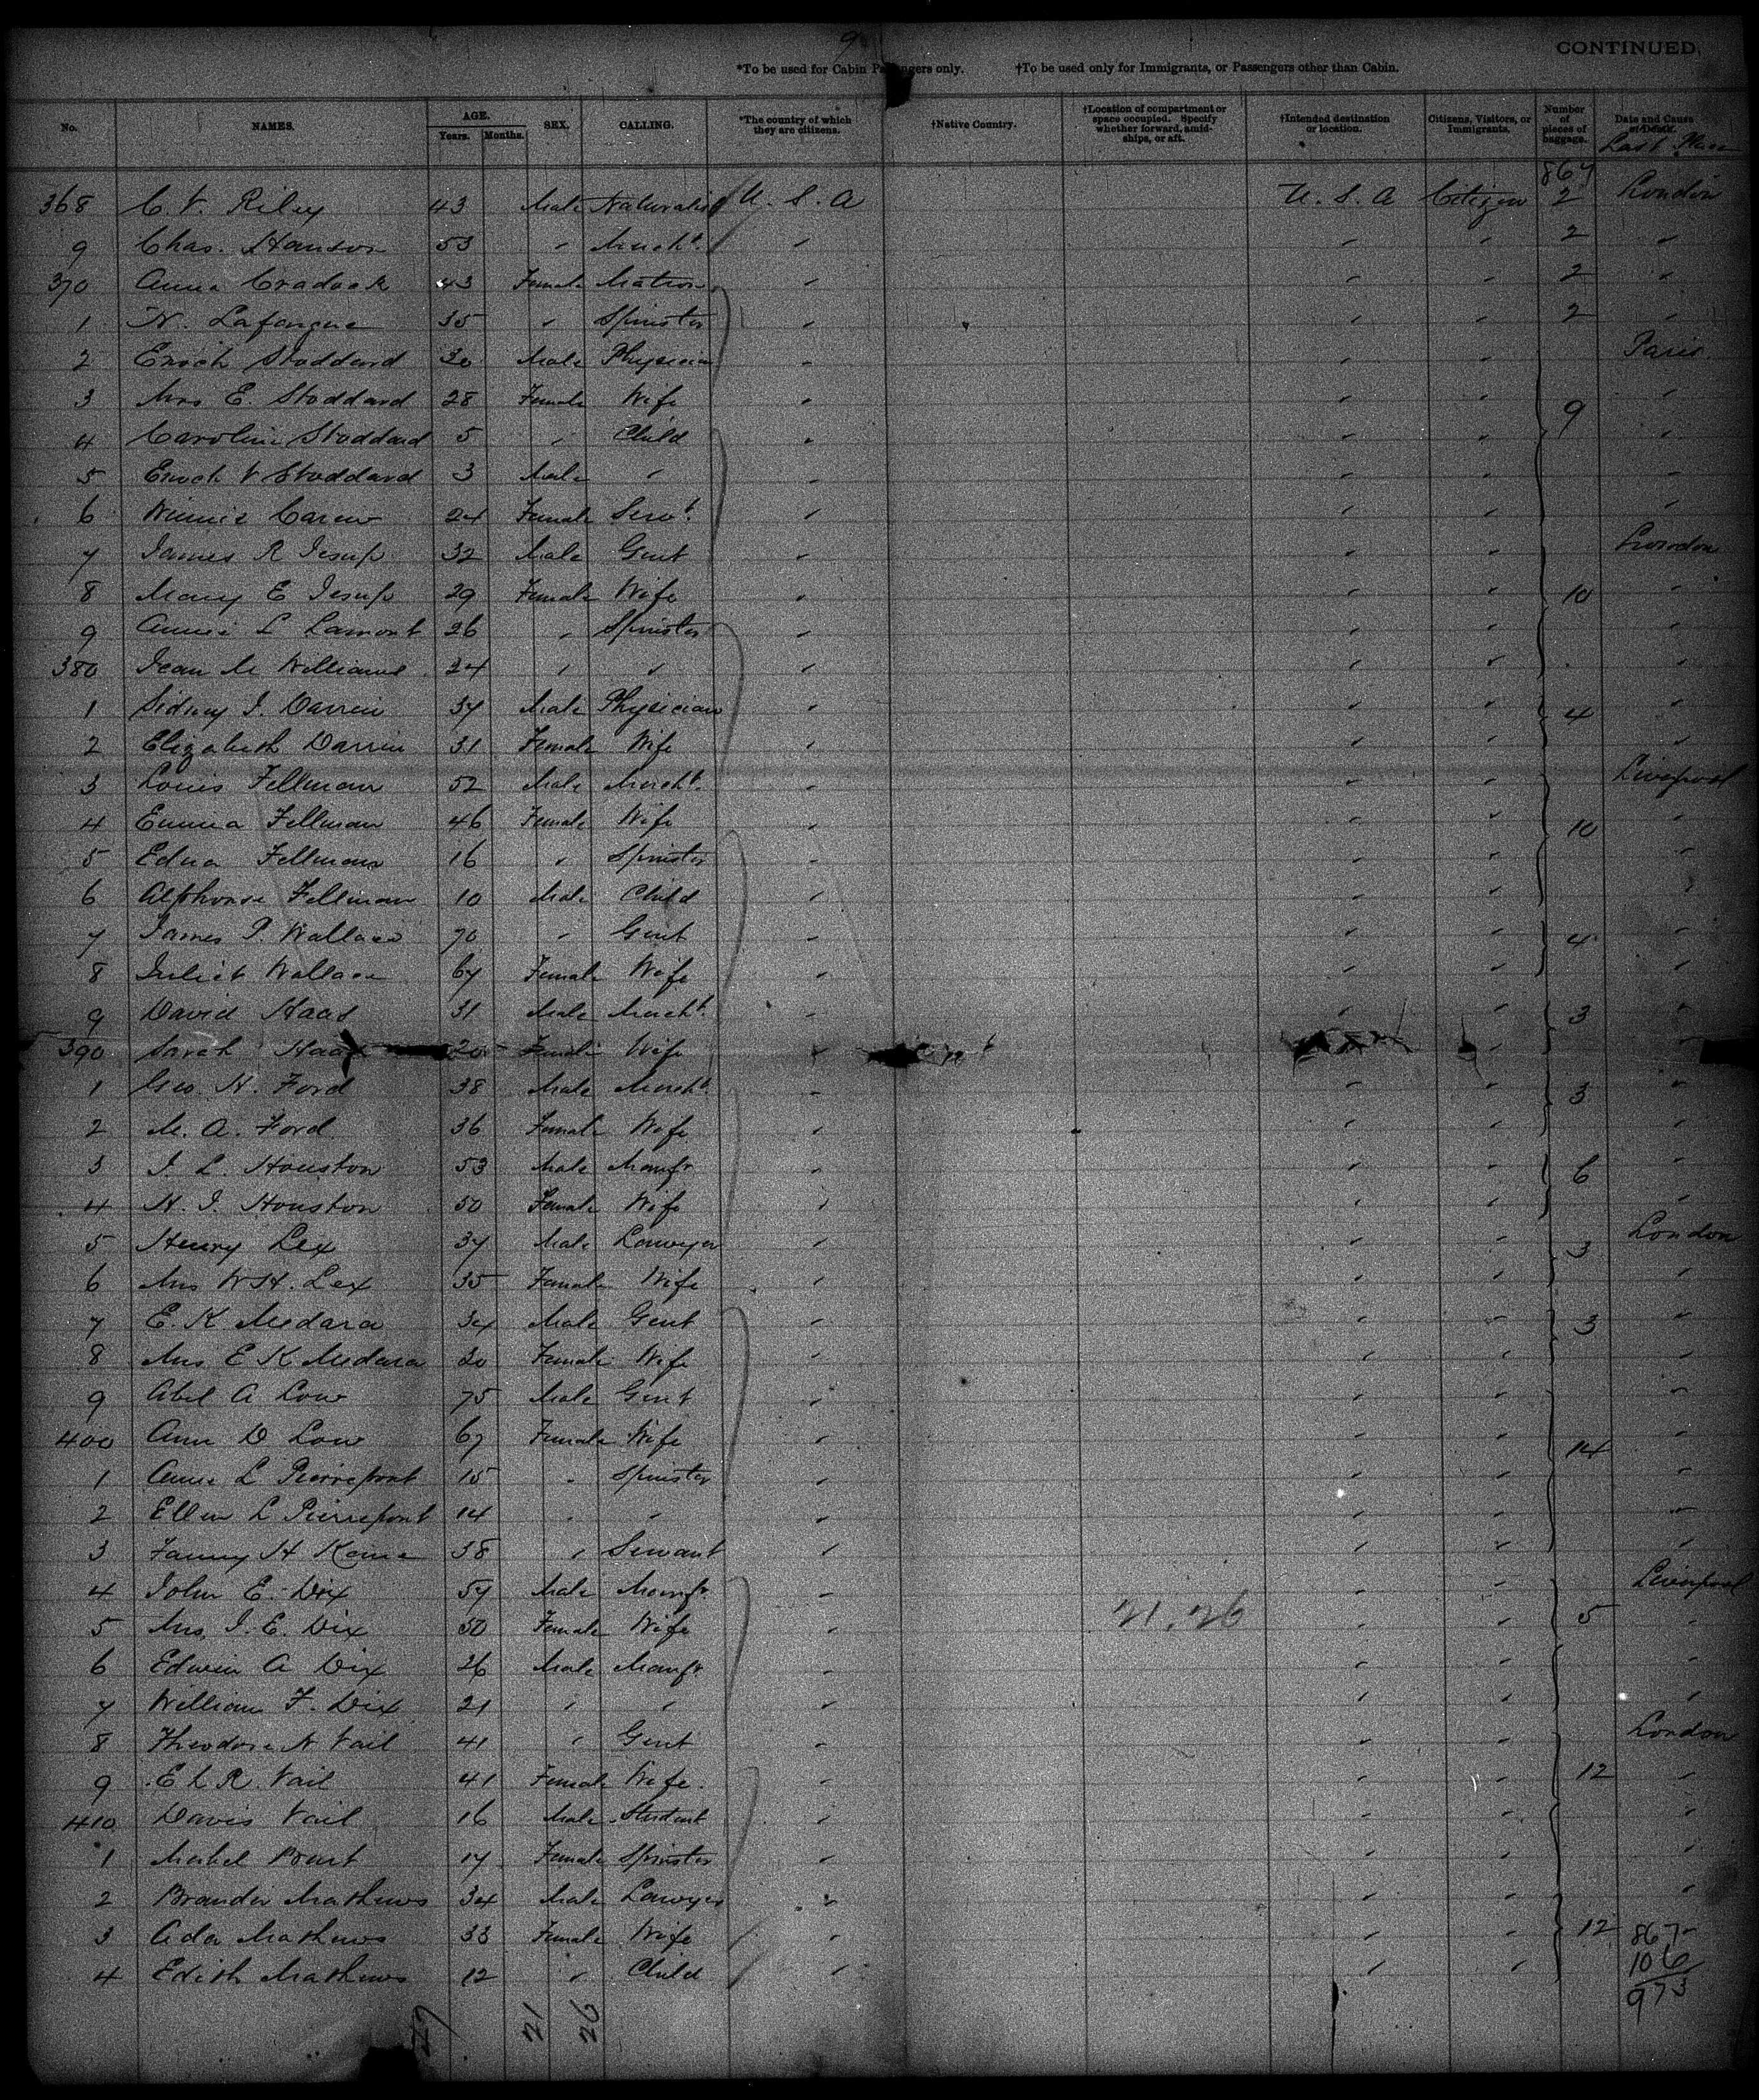 9
CONTINUED.
*To be used for Cabin Passengers only. †To be used only for Immigrants, or Passengers other than Cabin.
No. NAMES. AGE. Years. Months. SEX. CALLING. *The country of which they are citizens. †Native Country. †Location of compartment or space occupied. Specify whether forward, amidships, or aft. †Intended destination or location. Citizens, Visitors, or Immigrants. Number of pieces of baggage. Date and Cause of Death.
Last Place
867
368 C. V. Riley 43 Male Naturalist U. S. A U. S. A Citizen 2 London
9 Chas. Hanson 53 " Mercht. " " " 2 "
370 Anna Cradock 43 Female Matron " " " 2 "
1 N. Lafargue 35 " Spinster " " " 2 "
2 Enoch Stoddard 30 Male Physician " " " Paris
3 Mrs E. Stoddard 28 Female Wife " " " 9 "
4 Caroline Stoddard 5 " Child " " " "
5 Enoch V Stoddard 3 Male " " " " "
6 Winnie Carew 24 Female Servt. " " " "
7 James R Jesup 32 Male Gent " " " London
8 Mary E Jesup 29 Female Wife " " " 10 "
9 Annie L Lamont 26 " Spinster " " " "
380 Jean M Williams 24 " " " " " "
1 Sidney J. Darrin 37 Male Physician " " " 4 "
2 Elizabeth Darrin 31 Female Wife " " " "
3 Louis Fellman 52 Male Mercht. " " " Liverpool
4 Emma Fellman 46 Female Wife " " " 10 "
5 Edna Fellman 16 " Spinster " " " "
6 Alphonse Fellman 10 Male Child " " " "
7 James P. Wallace 70 " Gent " " " 4 "
8 Juliet Wallace 67 Female Wife " " "
9 David Haas 31 Male Mercht. " " " 3 "
390 Sarah Haas 20 Female Wife " " "
1 Geo. H. Ford 38 Male Mercht. " " " 3 "
2 M. A. Ford 36 Female Wife " " " "
3 J. L. Houston 53 Male Manfr " " " 6 "
4 H. J. Houston 50 Female Wife " " " "
5 Henry Lex 37 Male Lawyer " " " 3 London
6 Mrs W H. Lex 35 Female Wife " " " "
7 E. K Medara 34 Male Gent " " " 3 "
8 Mrs E K Medara 30 Female Wife " " " "
9 Abel A Low 75 Male Gent " " " "
400 Ann D Low 67 Female Wife " " " 14 "
1 Anne L Pierrepont 15 " Spinster " " " "
2 Ellen L Pierrepont 14 " " " " " "
3 Fanny H 38 " Servant " " " "
4 John E. Dix 57 Male Manfr. " " " Liverpool
5 Mrs. J. E. Dix 50 Female Wife " 21. 26 " " 5 "
6 Edwin A Dix 26 Male Manfr. " " " "
7 William F. Dix 21 " " " " " "
8 Theodore N Vail 41 " Gent " " " London
9 E L R. Vail 41 Female Wife. " " " 12 "
410 Davis Vail 16 Male Student " " " "
1 Mabel 17 Female Spinster " " " "
2 Brander Mathews 34 Male Lawyer " " " "
3 Ada Mathews 33 Female Wife " " " 12
4 Edith Mathews 12 " Child " " "
867
106
973
47 21 26